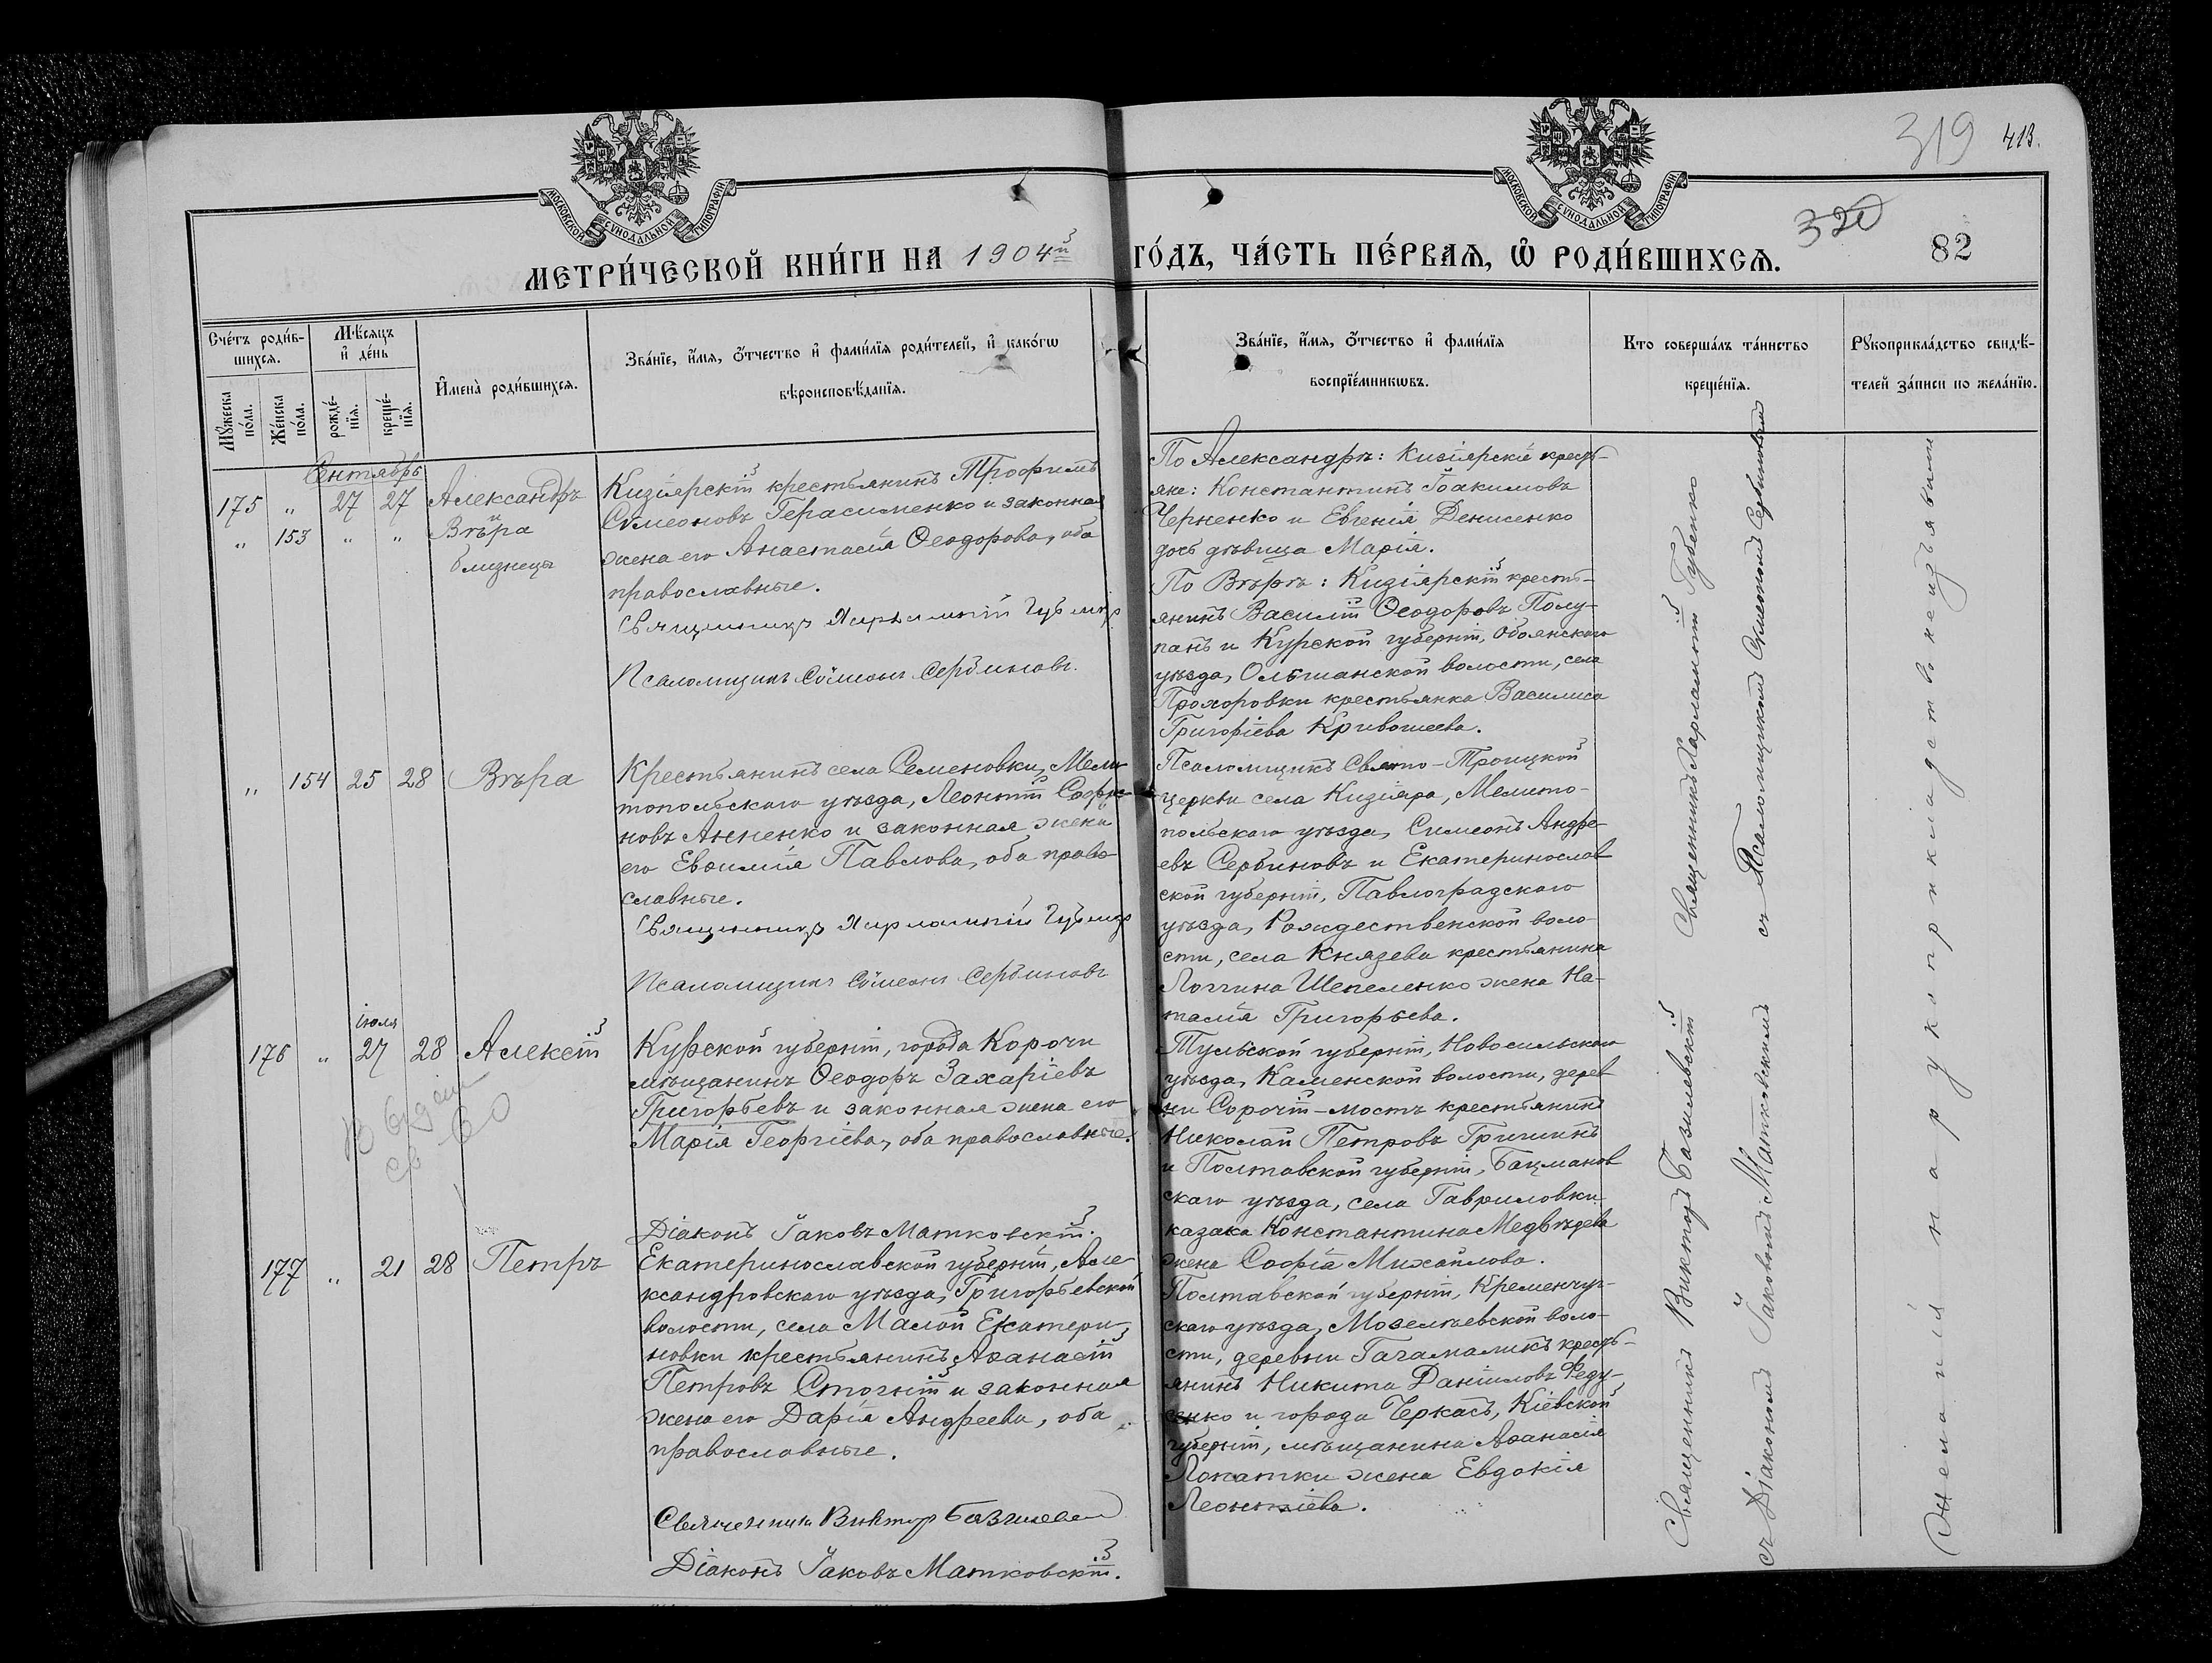 319 413.
320
82
МОСКОВСКОЙ СУНОДАЛЬНОЙ ТИПОГРАФІИ
МОСКОВСКОЙ СУНОДАЛЬНОЙ ТИПОГРАФІИ
МЕТРИ́ЧЕСКОЙ КНИ́ГИ НА 1904й ГО́ДЪ, ЧА́СТЬ ПЕ́РВАѦ, Ѽ РОДИ́ВШИХСѦ.
Сче́тъ роди́в-
шихсѧ.
Мꙋ́жеска по́ла.
Же́нска по́ла.
Мѣ́сѧцъ
и҆ де́нь
рожде́-
нїѧ.
креще́-
нїѧ.
И҆мена̀ роди́вшихсѧ.
Зва́нїе, и҆́мѧ, ѻ҆́тчество и҆ фами́лїѧ роди́телей, и҆ како́гѡ
вѣроисповѣ́данїѧ.
Зва́нїе, и҆́мѧ, ѻ҆́тчество и҆ фами́лїѧ
воспрїе́мникѡвъ.
Кто соверша́лъ та́инство
креще́нїѧ.
Рꙋкоприкла́дство свидѣ́-
телей за́писи по жела́нїю.
Сентябрь
175 " 27 27 Александръ
и
" 153 " " Вѣра
близнецы
Кизіярскій крестьянинъ Трофимъ
Сѵмеоновъ Герасименко и законная
жена его Анастасія Ѳеодорова, оба
православные.
Священникъ Харлампій Губенко
Псаломщикъ Сѵмеонъ Сербиновъ.
По Александрѣ: Кизіярскіе кресть-
яне: Константинъ Іоакимовъ
Черненко и Евгенія Денисенко
дочь дѣвица Марія.
По Вѣрѣ: Кизіярскій кресть-
янинъ Василій Ѳеодоровъ Полу-
панъ и Курской губерніи, Обоянскаго
уѣзда, Ольшанской волости, села
Прохоровки крестьянка Василиса
Григоріева Кривошеева.
" 154 25 28 Вѣра
Крестьянинъ села Семеновки, Мели-
топольскаго уѣзда, Леонтій Софро-
новъ Анненко и законная жена
его Евѳимія Павлова, оба право-
славные.
Священникъ Харлампій Губенко
Псаломщикъ Сѵмеонъ Сербиновъ
Псаломщикъ Свято-Троицкой
церкви села Кизіяра, Мелито-
польскаго уѣзда, Симеонъ Андре-
евъ Сербиновъ и Екатеринослав-
ской губерніи, Павлоградскаго
уѣзда, Рождественской воло-
сти, села Князева крестьянина
Логгина Шепеленко жена На-
талія Григорьева.
іюля
176 " 27 28 Алексій
Курской губерніи, города Корочи
мѣщанинъ Ѳеодоръ Захаріевъ
Григорьевъ и законная жена его
Марія Георгіева, оба православные.
Діаконъ Іаковъ Матковскій.
Тульской губерніи, Новосильскаго
уѣзда, Каменской волости, дерев-
ни Сорочій-мостъ крестьянинъ
Николай Петровъ Гришинъ
и Полтавской губерніи,
скаго уѣзда, села Гавриловки
казака Константина Медвѣдева
жена Софія Михайлова.
177 " 21 28 Петръ
Екатеринославской губерніи, Але-
ксандровскаго уѣзда, Григорьевской
волости, села Малой Екатери-
новки крестьянинъ Аѳанасій
Петровъ Стогній и законная
жена его Дарія Андреева, оба
православные.
Священникъ Викторъ Базилевскій
Діаконъ Іаковъ Матковскій.
Полтавской губерніи, Кременчуг-
скаго уѣзда, Мозелѣевской воло-
сти, деревни Гагамаликъ кресть-
янинъ Никита Даніиловъ Феду-
сенко и города Черкасъ, Кіевской
губерніи, мѣщанина Аѳанасія
Лопатки жена Евдокія
Леонтіева.
Священникъ Харлампій Губенко
съ Псаломщикомъ Сѵмеономъ Сербиновымъ
Священникъ Викторъ Базилевскій
съ Діакономъ Іаковомъ Матковскимъ
Желанія на рукоприкладство не изъявили